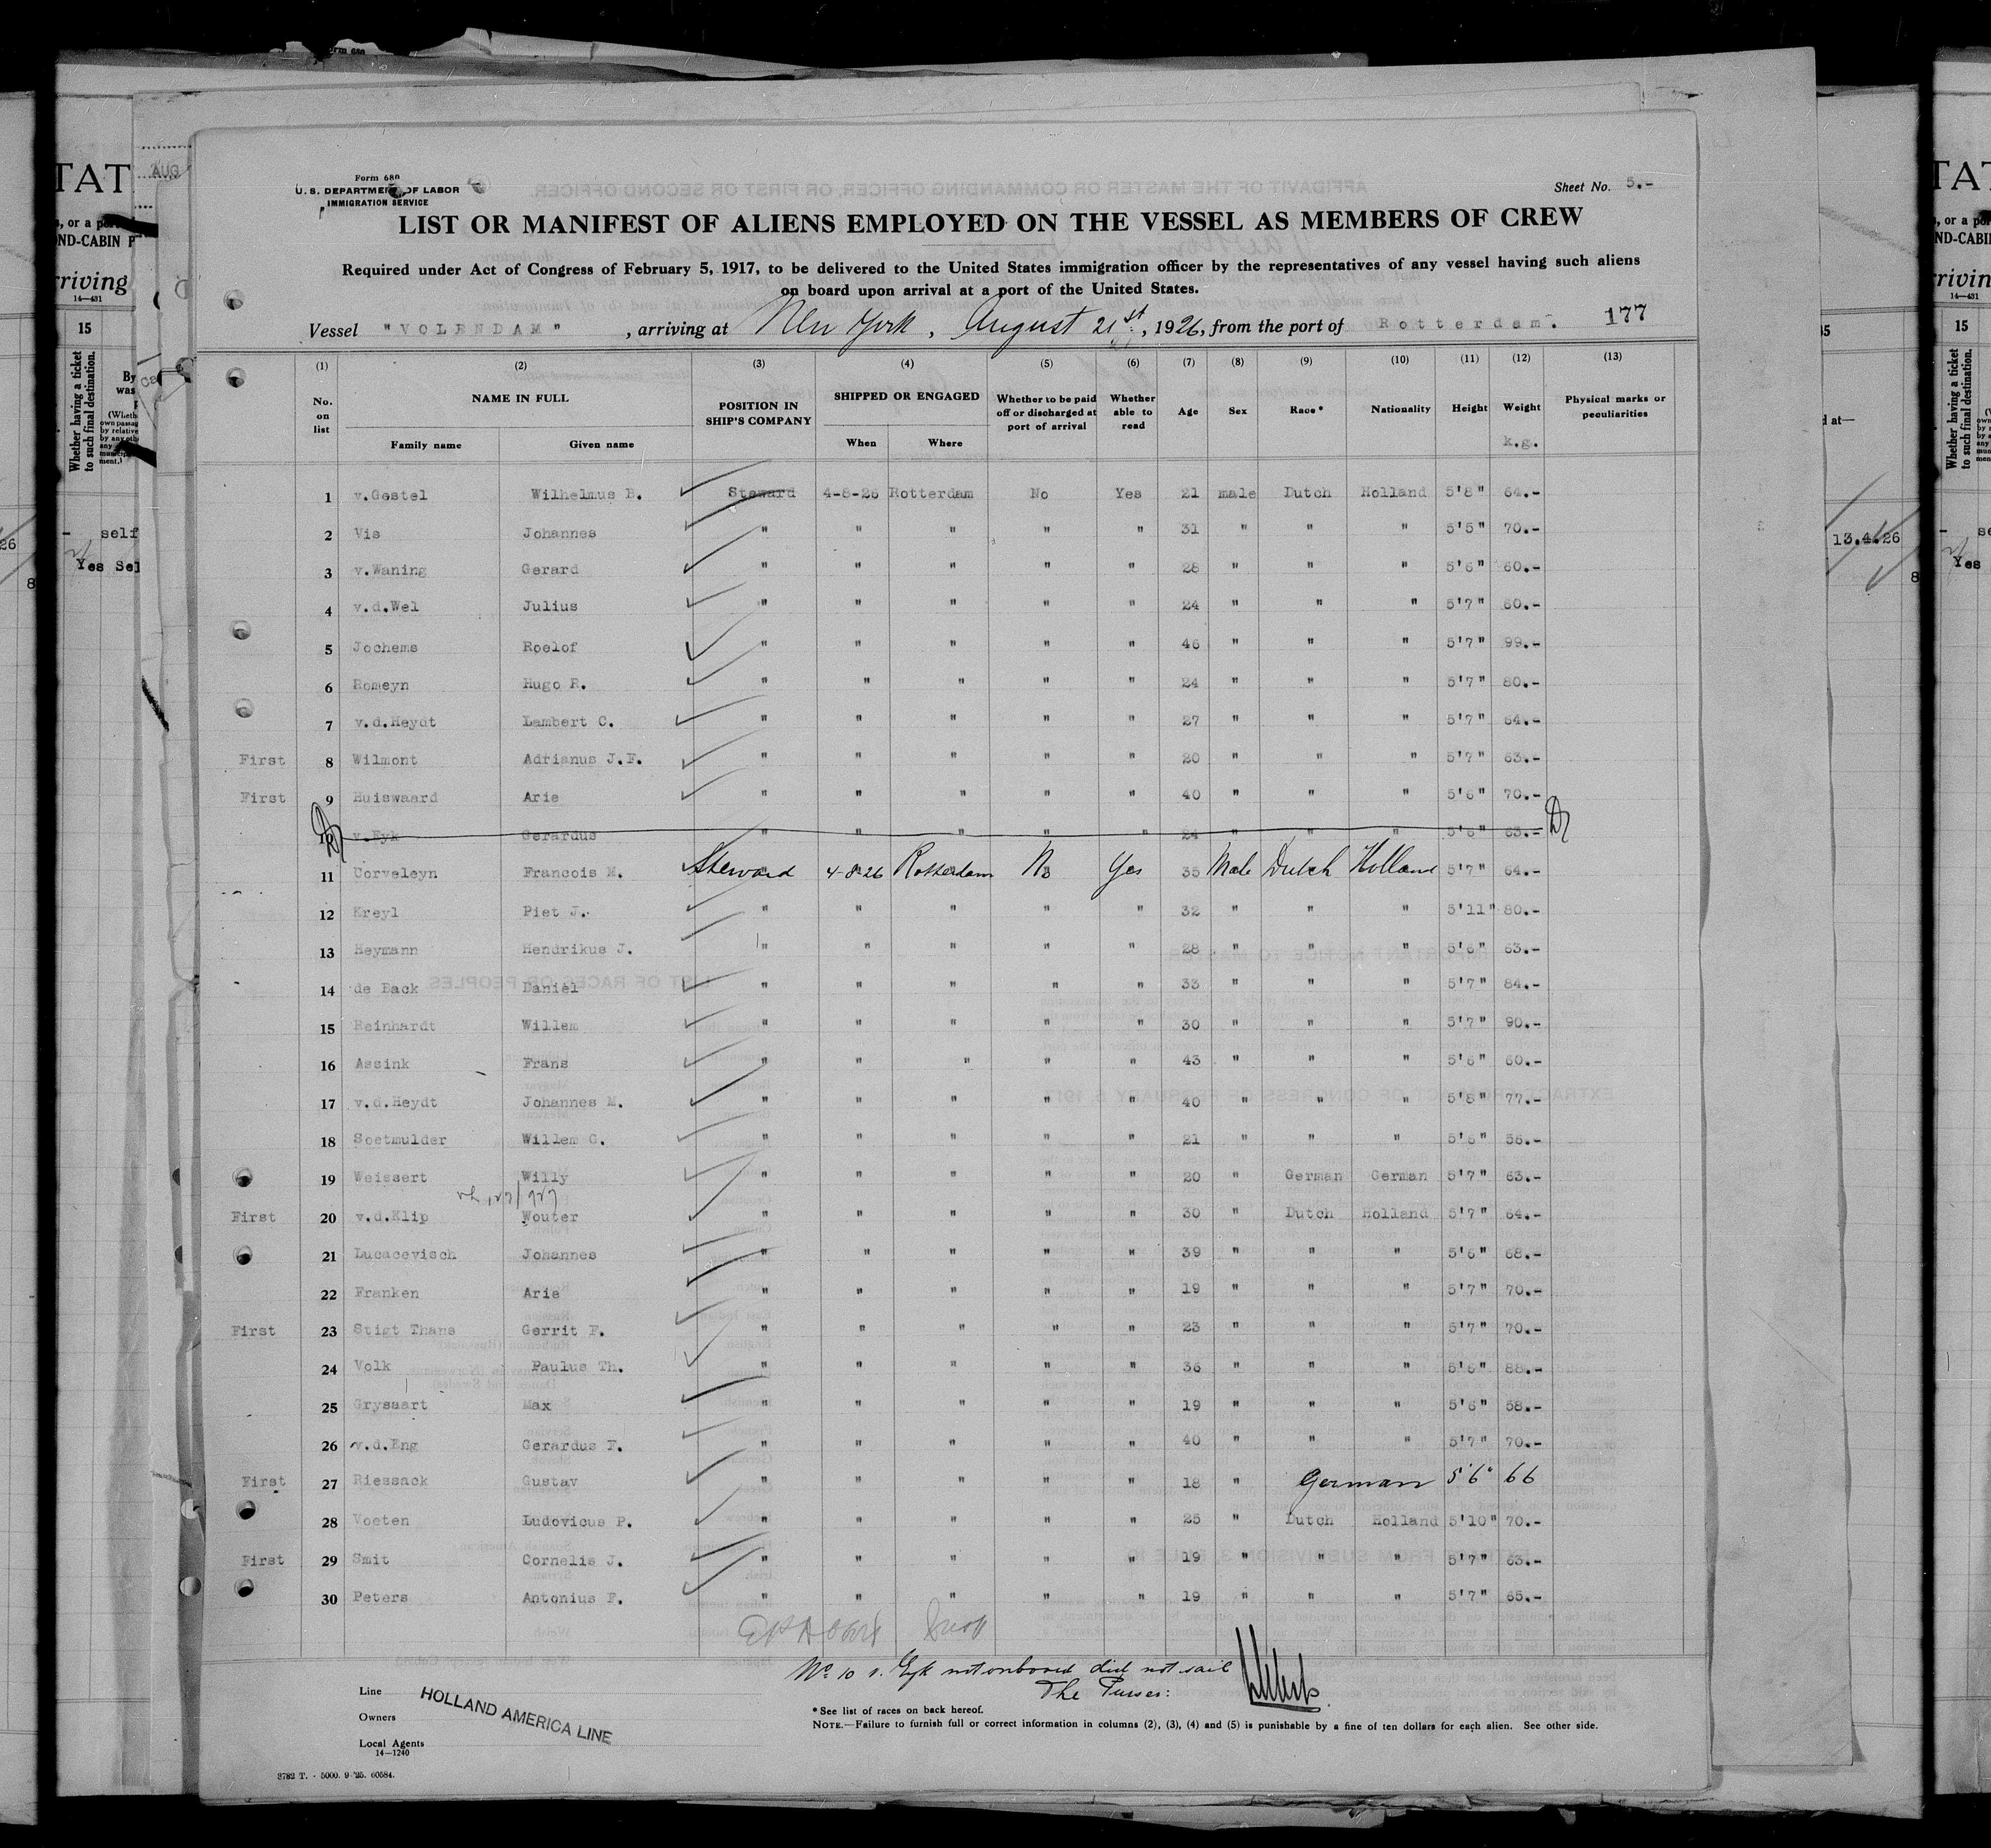 Form 680
U. S. DEPARTMENT OF LABOR
IMMIGRATION SERVICE
Sheet No. 5.-
LIST OR MANIFEST OF ALIENS EMPLOYED ON THE VESSEL AS MEMBERS OF CREW
Required under Act of Congress of February 5, 1917, to be delivered to the United States immigration officer by the representatives of any vessel having such aliens
on board upon arrival at a port of the United States.
Vessel "VOLENDAM", arriving at New York, August 21st, 1926, from the port of Rotterdam. 177
(1) (2) (3) (4) (5) (6) (7) (8) (9) (10) (11) (12) (13)
No. on list NAME IN FULL Family name Given name POSITION IN SHIP'S COMPANY SHIPPED OR ENGAGED When Where Whether to be paid off or discharged at port of arrival Whether able to read Age Sex Race* Nationality Height Weight k.g. Physical marks or peculiarities
1 v.Gestel Wilhelmus B. Steward 4-8-26 Rotterdam No Yes 21 male Dutch Holland 5'8" 64.-
2 Vis Johannes " " " " " 31 " " " 5'5" 70.-
3 v.Waning Gerard " " " " " 28 " " " 5'6" 60.-
4 v.d.Wel Julius " " " " " 24 " " " 5'7" 60.-
5 Jochems Roelof " " " " " 46 " " " 5'7" 99.-
6 Romeyn Hugo R. " " " " " 24 " " " 5'7" 80.-
7 v.d.Heydt Lambert C. " " " " " 27 " " " 5'7" 64.-
First 8 Wilmont Adrianus J.F. " " " " " 20 " " " 5'7" 63.-
First 9 Huiswaard Arie " " " " " 40 " " " 5'6" 70.-
10 v.Eyk Gerardus " " " " " 24 " " " 5'6" 63.-
11 Corveleyn Francois M. Steward 4-8-26 Rotterdam No Yes 35 Male Dutch Holland 5'7" 64.-
12 Kreyl Piet J. " " " " " 32 " " " 5'11" 80.-
13 Heymann Hendrikus J. " " " " " 28 " " " 5'6" 63.-
14 de Back Daniël " " " " " 33 " " " 5'7" 84.-
15 Reinhardt Willem " " " " " 30 " " " 5'7" 90.-
16 Assink Frans " " " " " 43 " " " 5'6" 60.-
17 v.d.Heydt Johannes M. " " " " " 40 " " " 5'8" 77.-
18 Soetmulder Willem G. " " " " " 21 " " " 5'6" 56.-
19 Weissert Willy " " " " " 20 " German German 5'7" 63.-
First 20 v.d.Klip Wouter " " " " " 30 " Dutch Holland 5'7" 64.-
21 Lucacevisch Johannes " " " " " 39 " " " 5'6" 68.-
22 Franken Arie " " " " " 19 " " " 5'7" 70.-
First 23 Stigt Thans Gerrit F. " " " " " 23 " " " 5'7" 70.-
24 Volk Paulus Th. " " " " " 36 " " " 5'6" 88.-
25 Gryseart Max " " " " " 19 " " " 5'6" 58.-
26 v.d.Eng Gerardus F. " " " " " 40 " " " 5'7" 70.-
First 27 Riessack Gustav " " " " " 18 " German 5'6" 66
28 Voeten Ludovicus P. " " " " " 25 " Dutch Holland 5'10" 70.-
First 29 Smit Cornelis J. " " " " " 19 " " " 5'7" 63.-
30 Peters Antonius F. " " " " " 19 " " " 5'7" 65.-
No 10 v. Eyk not on board did not sail
The Purser:
Line
Owners
Local Agents
HOLLAND AMERICA LINE
14—1240
*See list of races on back hereof.
NOTE.—Failure to furnish full or correct information in columns (2), (3), (4) and (5) is punishable by a fine of ten dollars for each alien. See other side.
3782 T. - 5000. 9-'25. 60584.
TAT
riving
14—431
15
Whether having a ticket to such final destination.
self
13.4.26